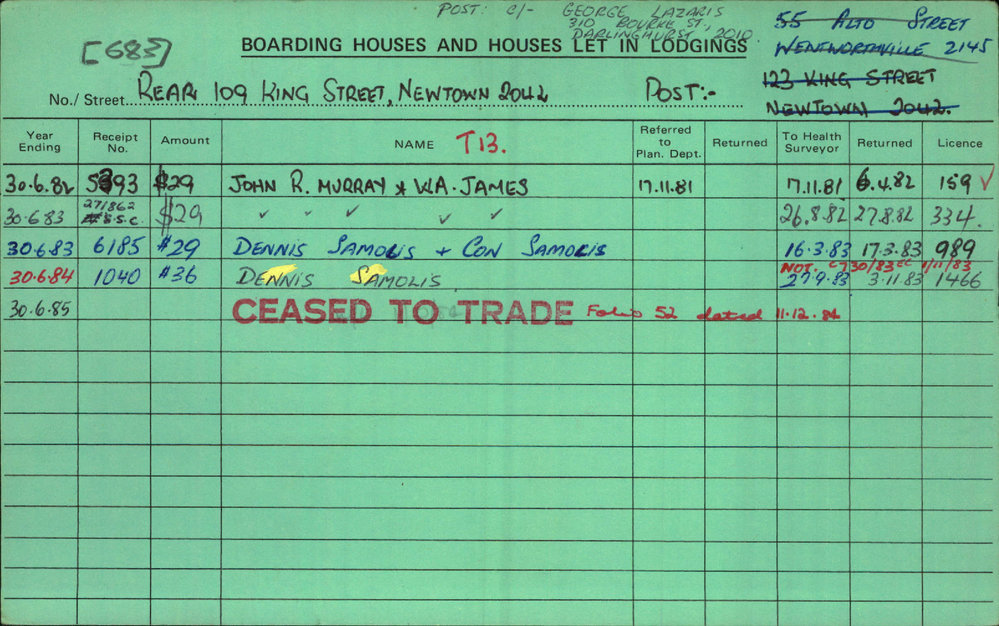 POST: C/- GEORGE LAZARIS
310 BOURKE ST.,
DARLINGHURST, 2010
55 ALTO STREET
WENTWORTHVILLE 2145
[683]
BOARDING HOUSES AND HOUSES LET IN LODGINGS
123 KING STREET
NEWTOWN 2042.
No./ Street REAR 109 KING STREET, NEWTOWN 2042 POST:-
Year Ending Receipt No. Amount NAME T13. Referred to Plan. Dept. Returned To Health Surveyor Returned Licence
30.6.82 5393 $29 JOHN R. MURRAY & W.A. JAMES 17.11.81 17.11.81 6.4.82 159 ✓
30.6.83 271862 S.S.C. $29 ✓ ✓ ✓ ✓ ✓ 26.8.82 27.8.82 334.
30.6.83 6185 $29 DENNIS SAMOLIS + CON SAMOLIS 16.3.83 17.3.83 989
NOT. C730/83 1/11/83
30.6.84 1040 $36 DENNIS SAMOLIS 27.9.83 3.11.83 1466
30.6.85 CEASED TO TRADE Folio 52 dated 11.12.84